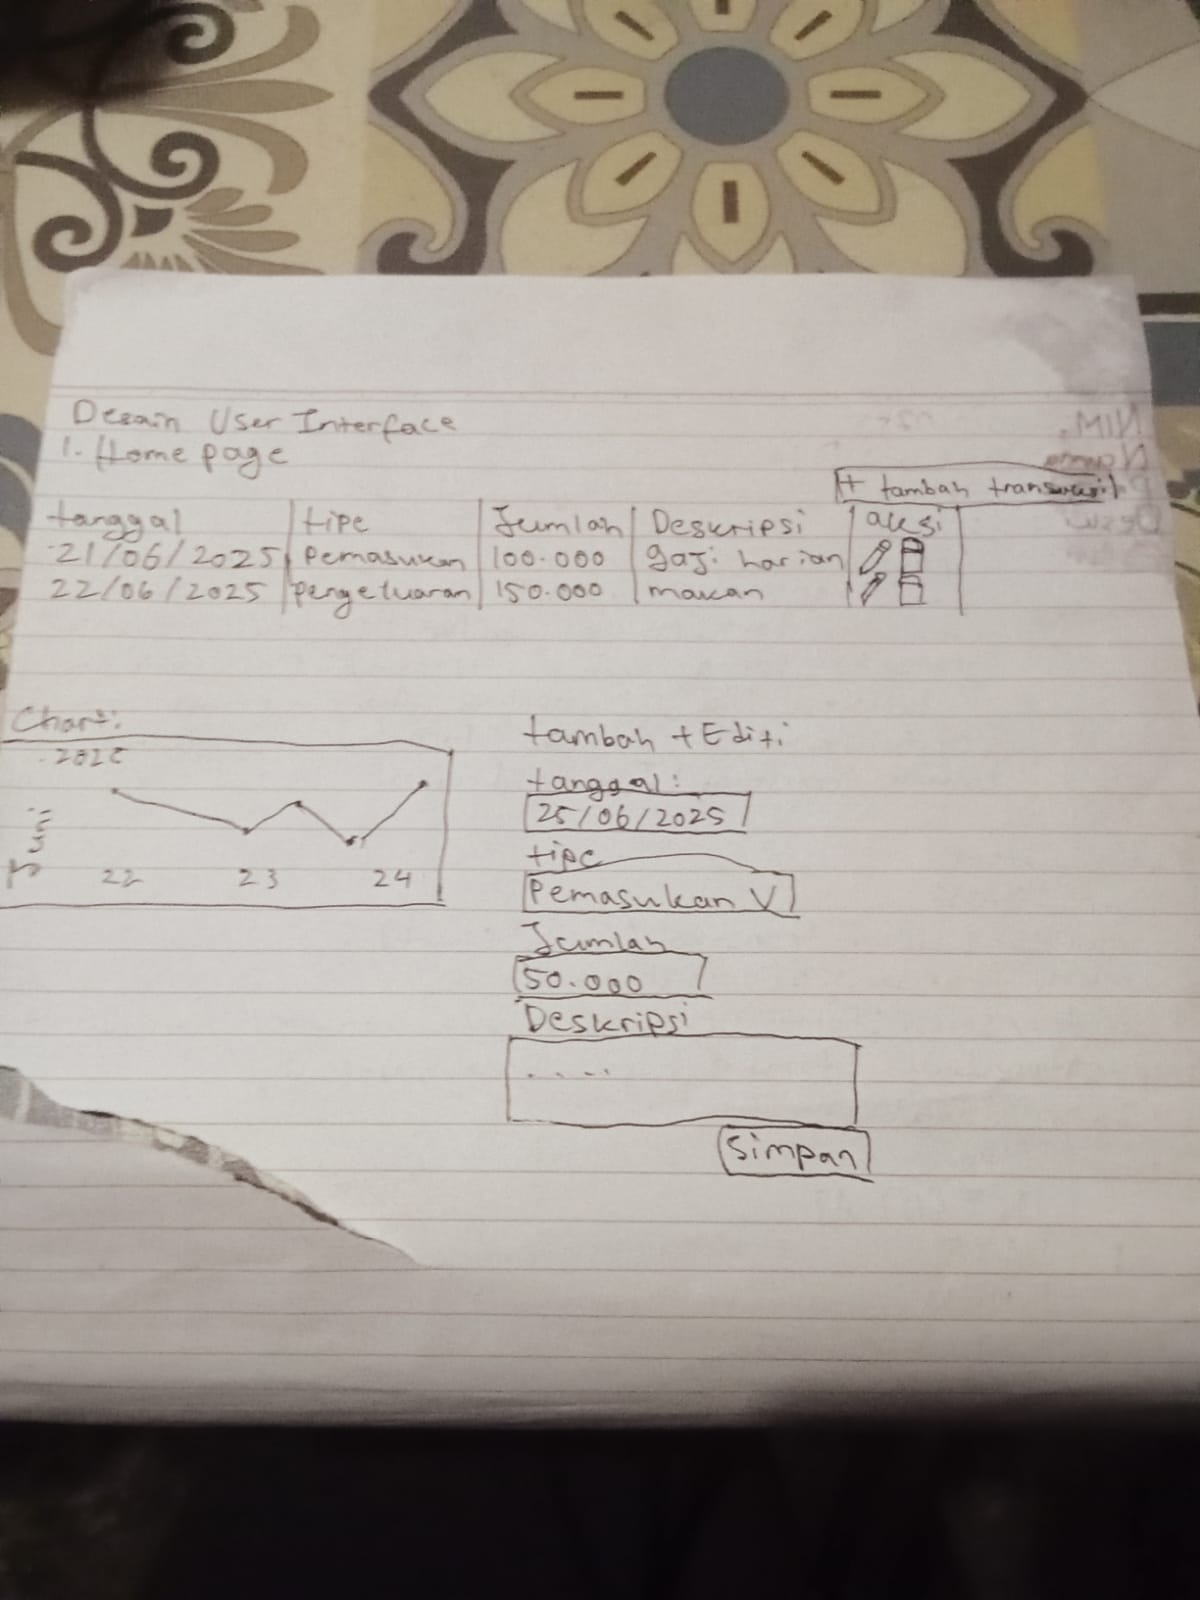 Desain User Interface
1. Home page
+ tambah transaksi
tanggal tipe Jumlah Deskripsi aksi
21/06/2025 Pemasukan 100.000 gaji harian
22/06/2025 Pengeluaran 150.000 makan
Chart:
2025
Juni
22 23 24
tambah + Edit:
tanggal:
25/06/2025
tipe
Pemasukan V
Jumlah
50.000
Deskripsi
....
Simpan
NIM:
Nama